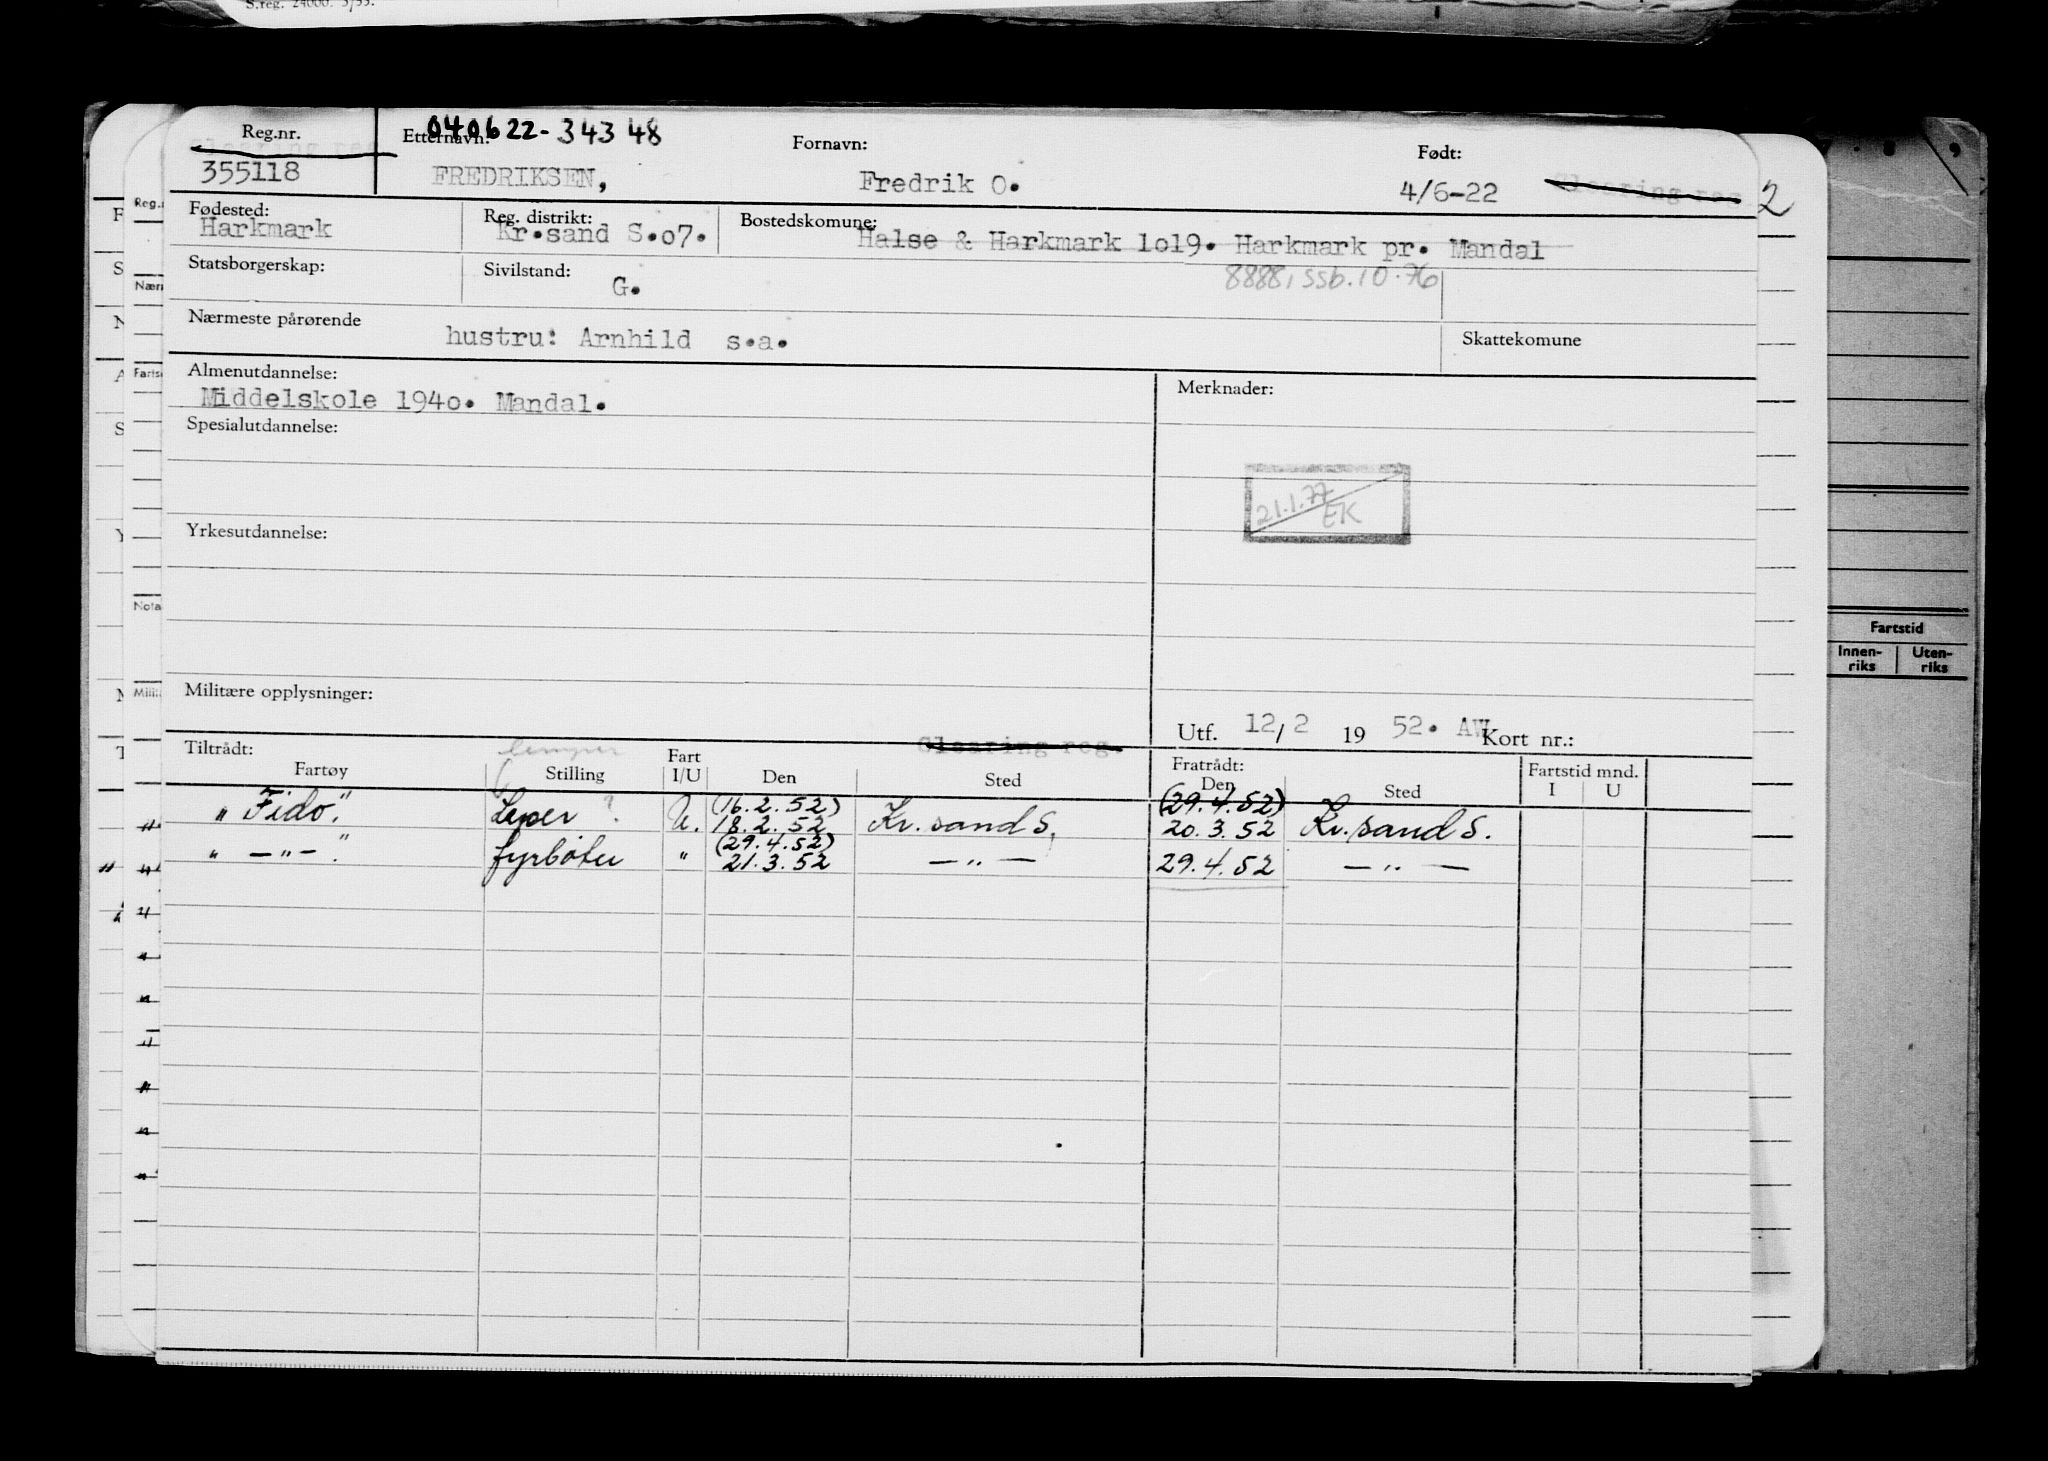 S.reg. 24000. 3/55.
Reg.nr. Etternavn: 040622-34348 Fornavn: Født:
355118 FREDRIKSEN, Fredrik O. 4/6-22 Clearing reg 2
Fødested: Reg. distrikt: Bostedskomune:
Harkmark Kr.sand S.o7. Halse & Harkmark 1o19. Harkmark pr. Mandal
Statsborgerskap: Sivilstand: G. 8888, ssb.10.76
Nærmeste pårørende hustru: Arnhild s.a. Skattekomune
Almenutdannelse: Merknader:
Middelskole 194o. Mandal.
Spesialutdannelse:
21.1.77
EK
Yrkesutdannelse:
Militære opplysninger:
Utf. 12/2 1952. AW Kort nr.:
Tiltrådt: lemper Fart Clearing reg. Fratrådt: Fartstid mnd.
Fartøy Stilling I/U Den Sted Den Sted I U
(16.2.52) (29.4.52)
" Fido". ? U. 18.2.52 Kr.sand S. 20.3.52 Kr.sand S.
(29.4.52)
" —"— ." fyrbøter " 21.3.52 — " — 29.4.52 — " —
Fartstid
Innen-riks Uten-riks